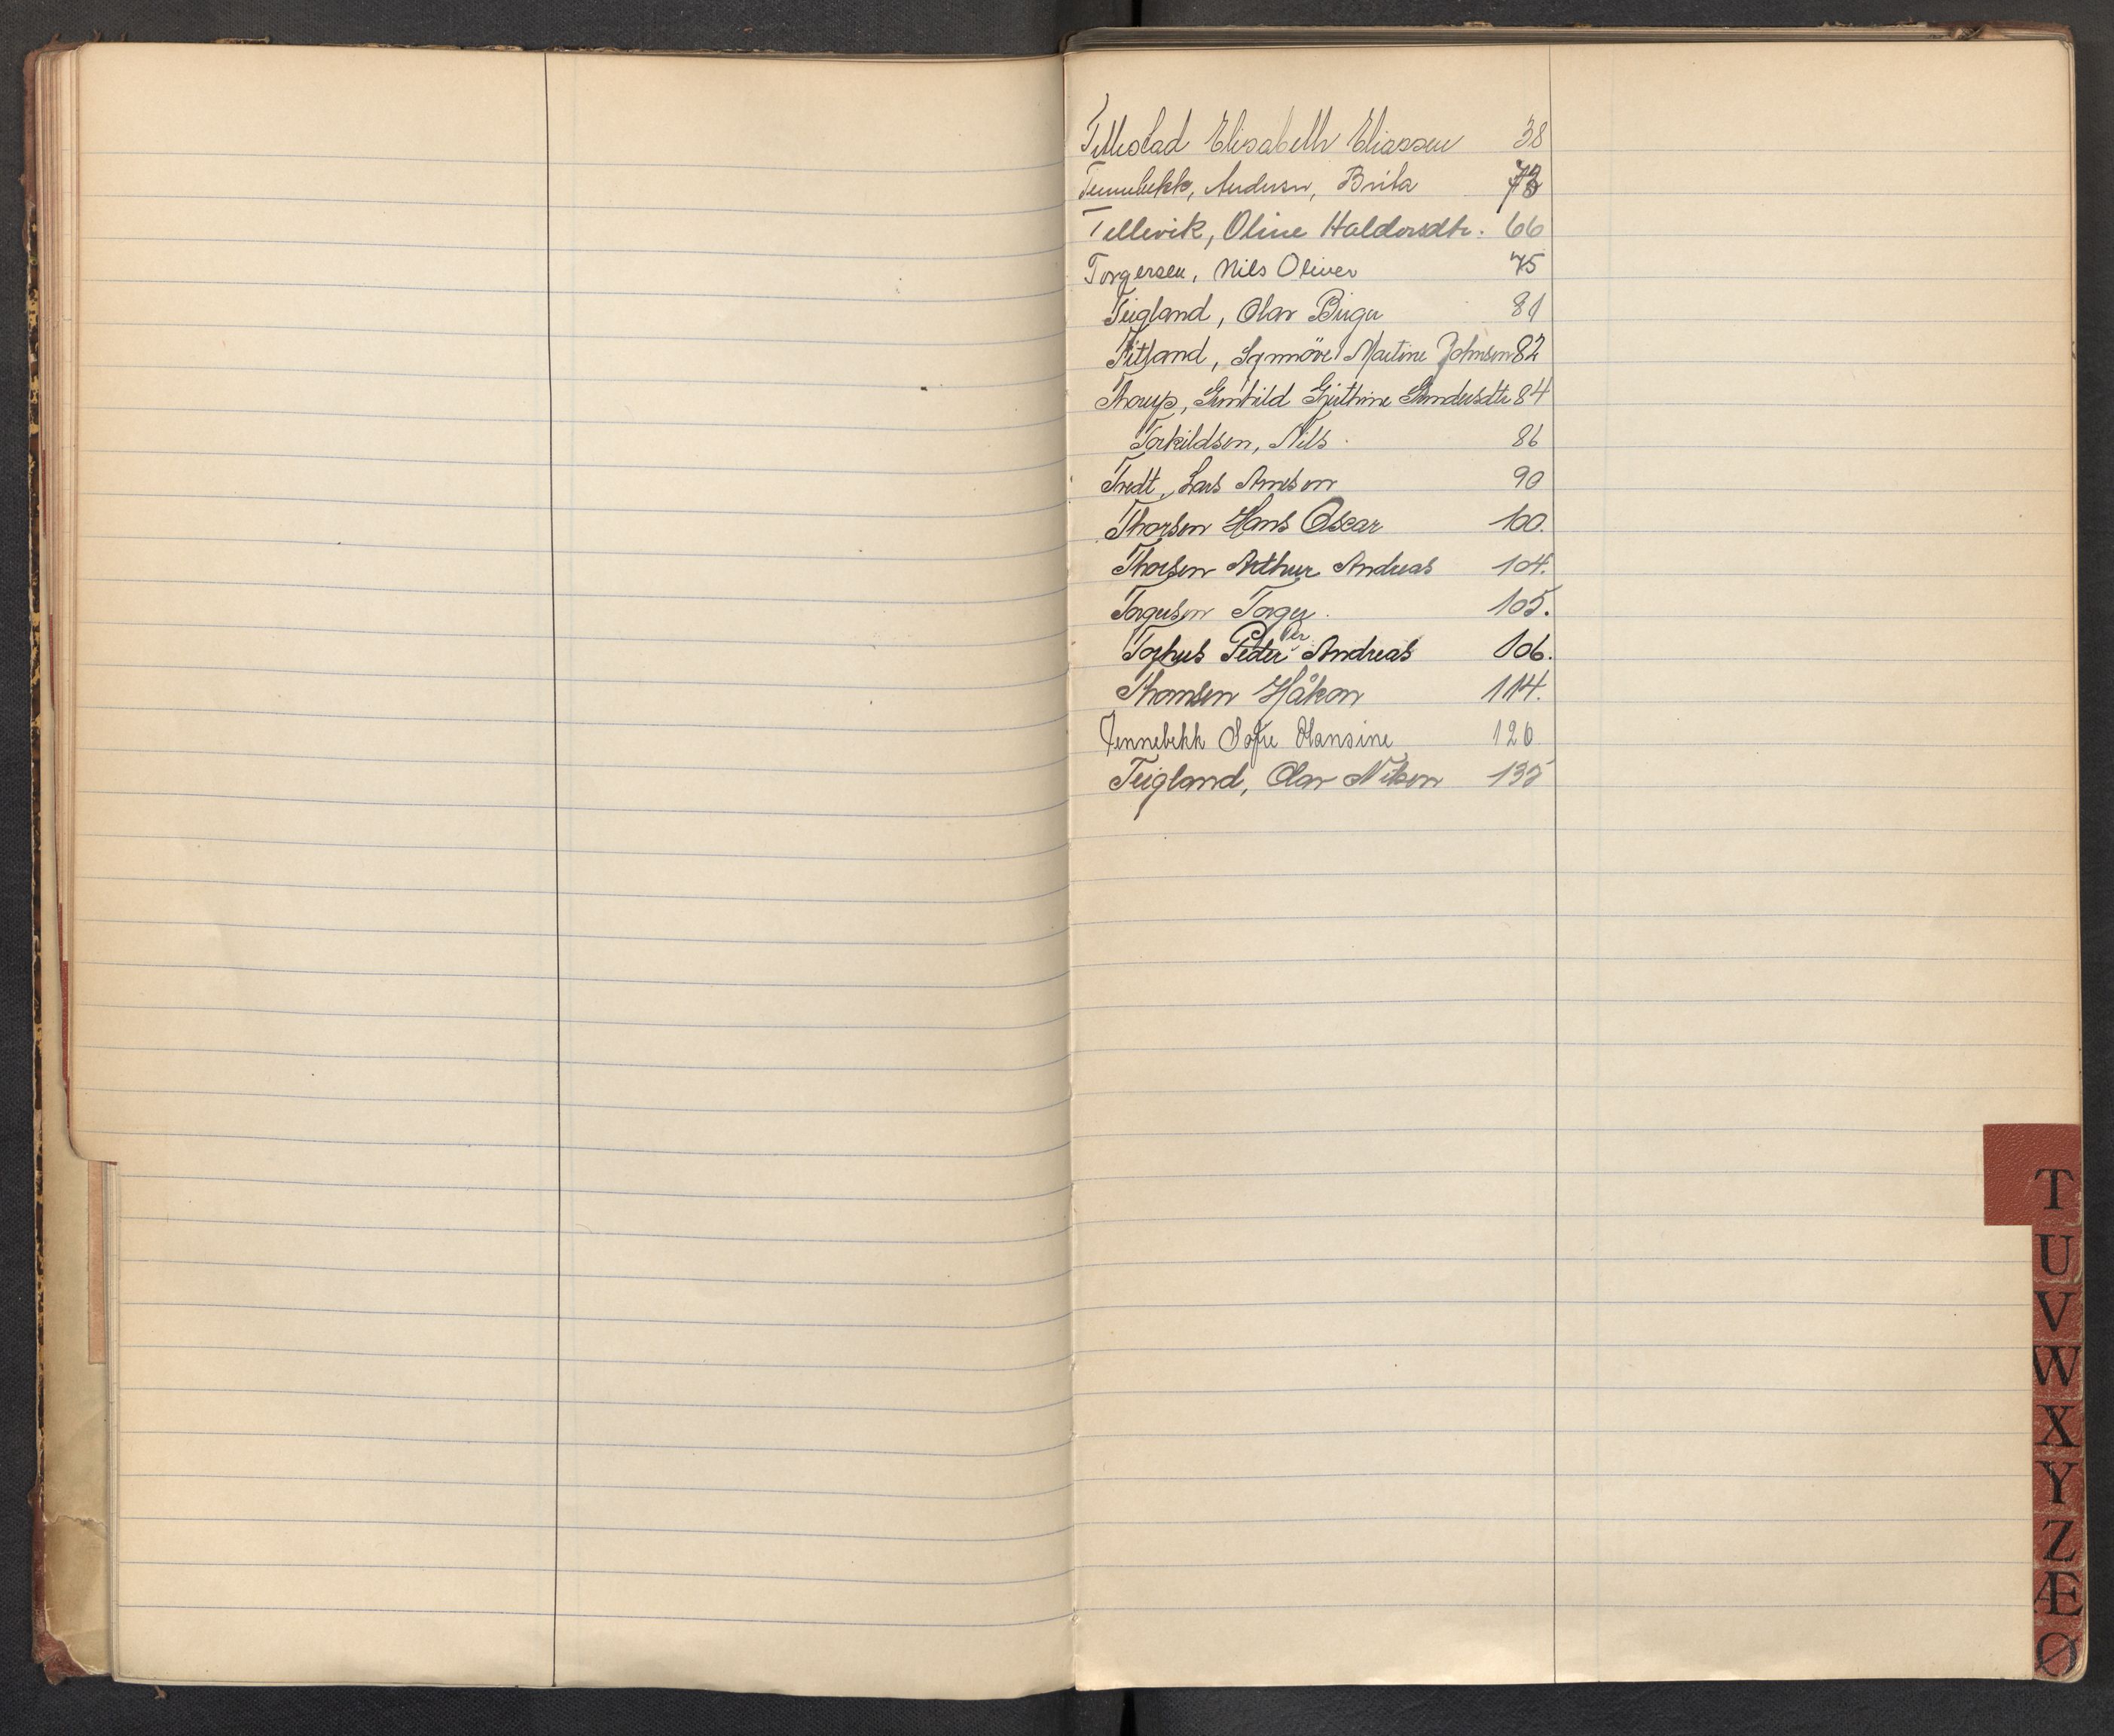 Tellestad Elisabeth Eliassen 38
Tennebekk, Andersen, Brita 73
Tellevik, Oline Haldorsdtr. 66
Torgersen, Nils Oliver 75
Teigland, Olav Birger 81
Titland, Synnöve Martine Johnsen 82
Thorup, Gunhild Gjuthine 84
Torkildsen, Nils 86
Tredt, Lars Arneson 90
Thorsen Hans Oscar 100.
Thorsen Arthur Andreas 104.
Torgersen Torger. 105.
Per
Torhus Peder Andreas 106.
Thomsen Håkon 114.
Tennebekk Sofie Hansine 126
Teigland, Olav Nilsen 135
T
U
V
W
X
Y
Z
Æ
Ø